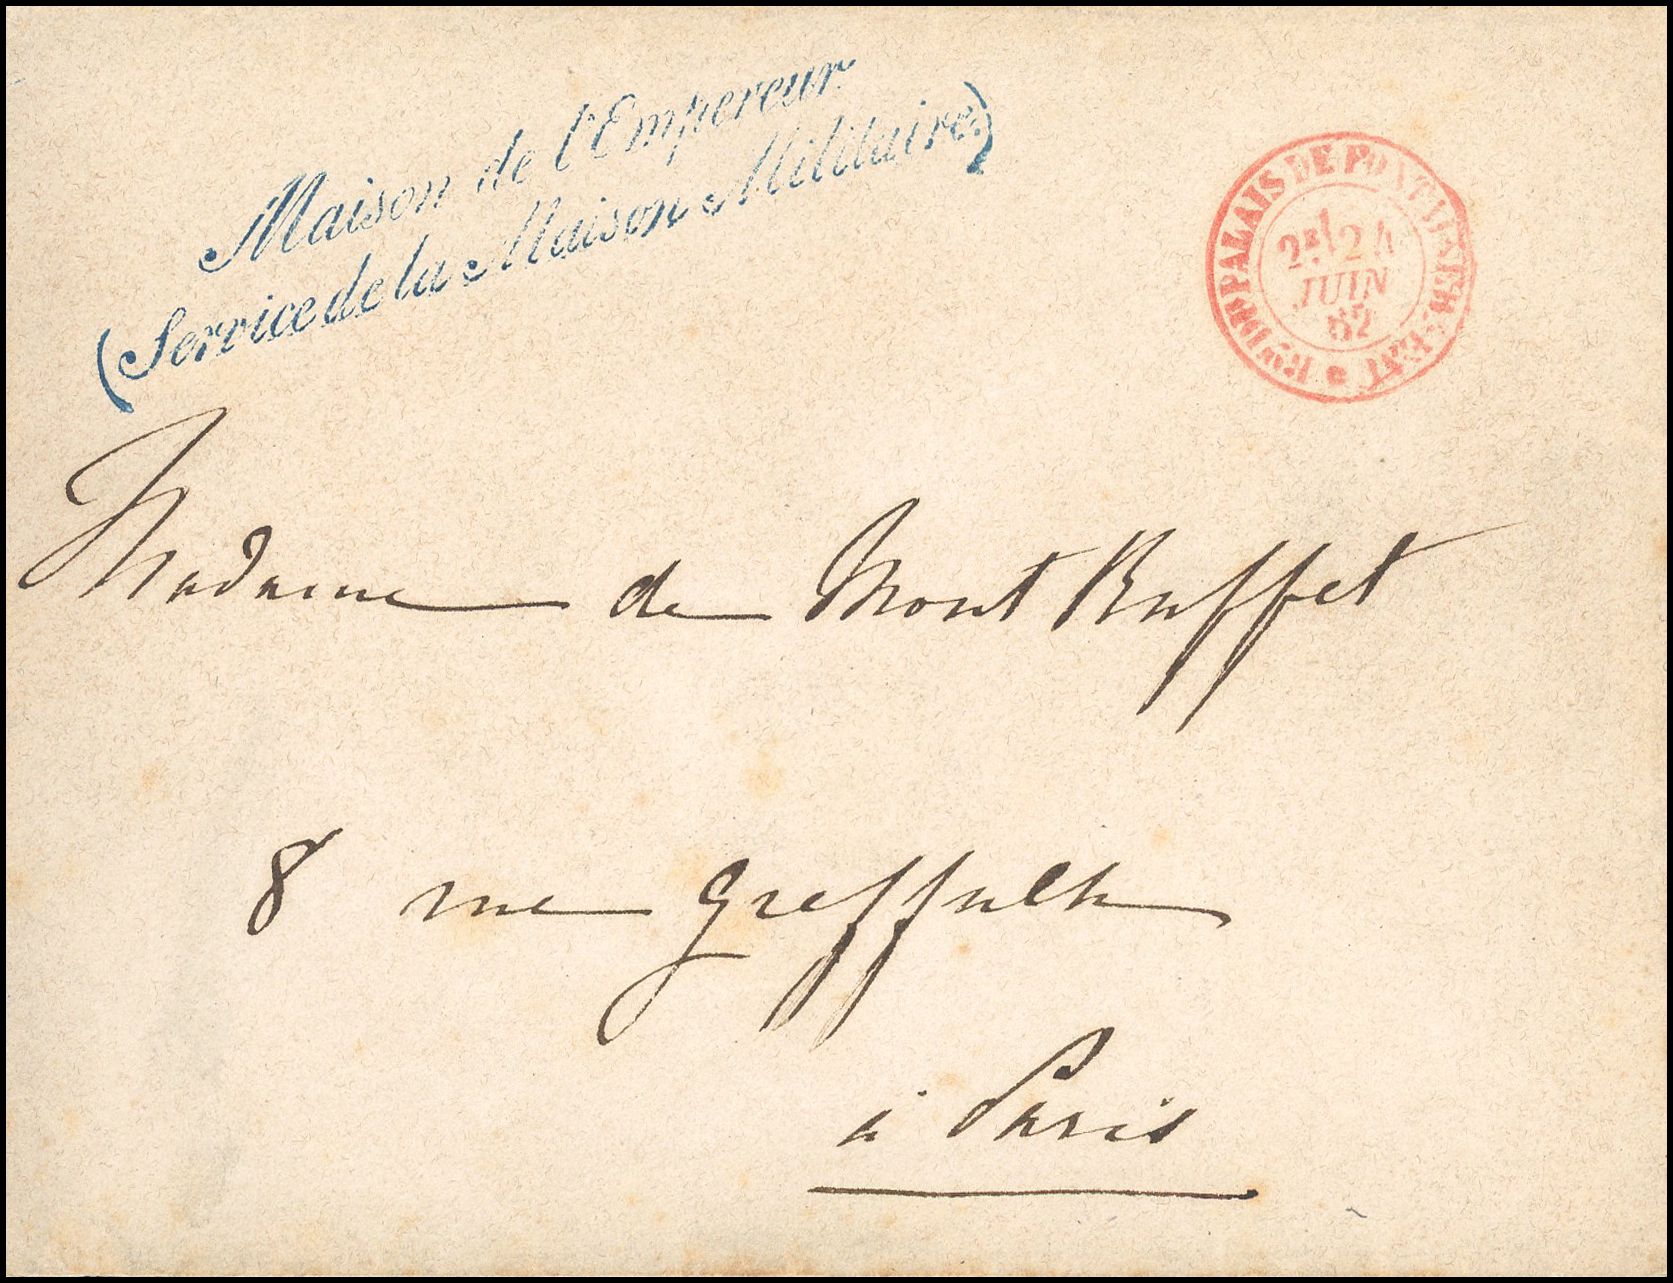 Maison de l'Empereur
(Service de la Maison Militaire)
PALAIS DE FONTAINEBLEAU
2E 24
JUIN
62
Madame de Mont Ruffet
8 rue Greffulhe
à Paris